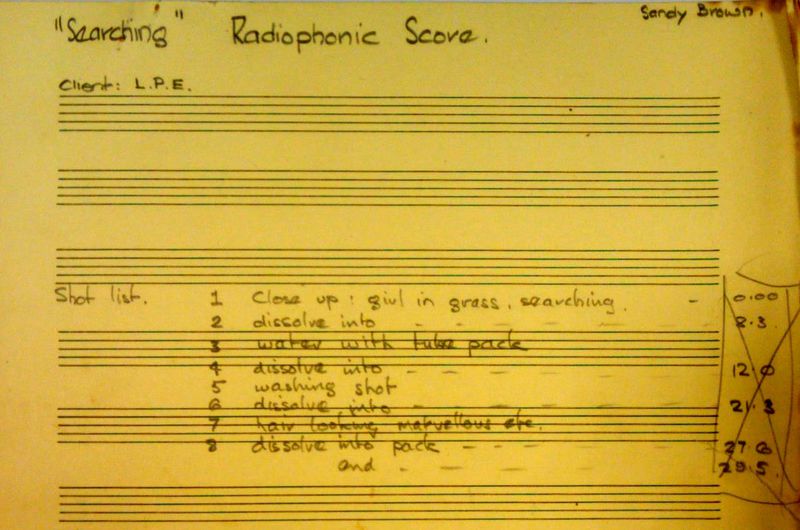 Sandy Brown.
"Searching" Radiophonic Score.
Client: L.P.E.
Shot list. 1 Close up: girl in grass, searching. - 0.00
2 dissolve into - - - - - - - 8.3
3 water with tube pack
4 dissolve into - - - - - - 12.0
5 washing shot
6 dissolve into - - - - - - 21.3
7 hair looking marvellous etc.
8 dissolve into pack - - - - 27.6
end - - - - - - 29.5